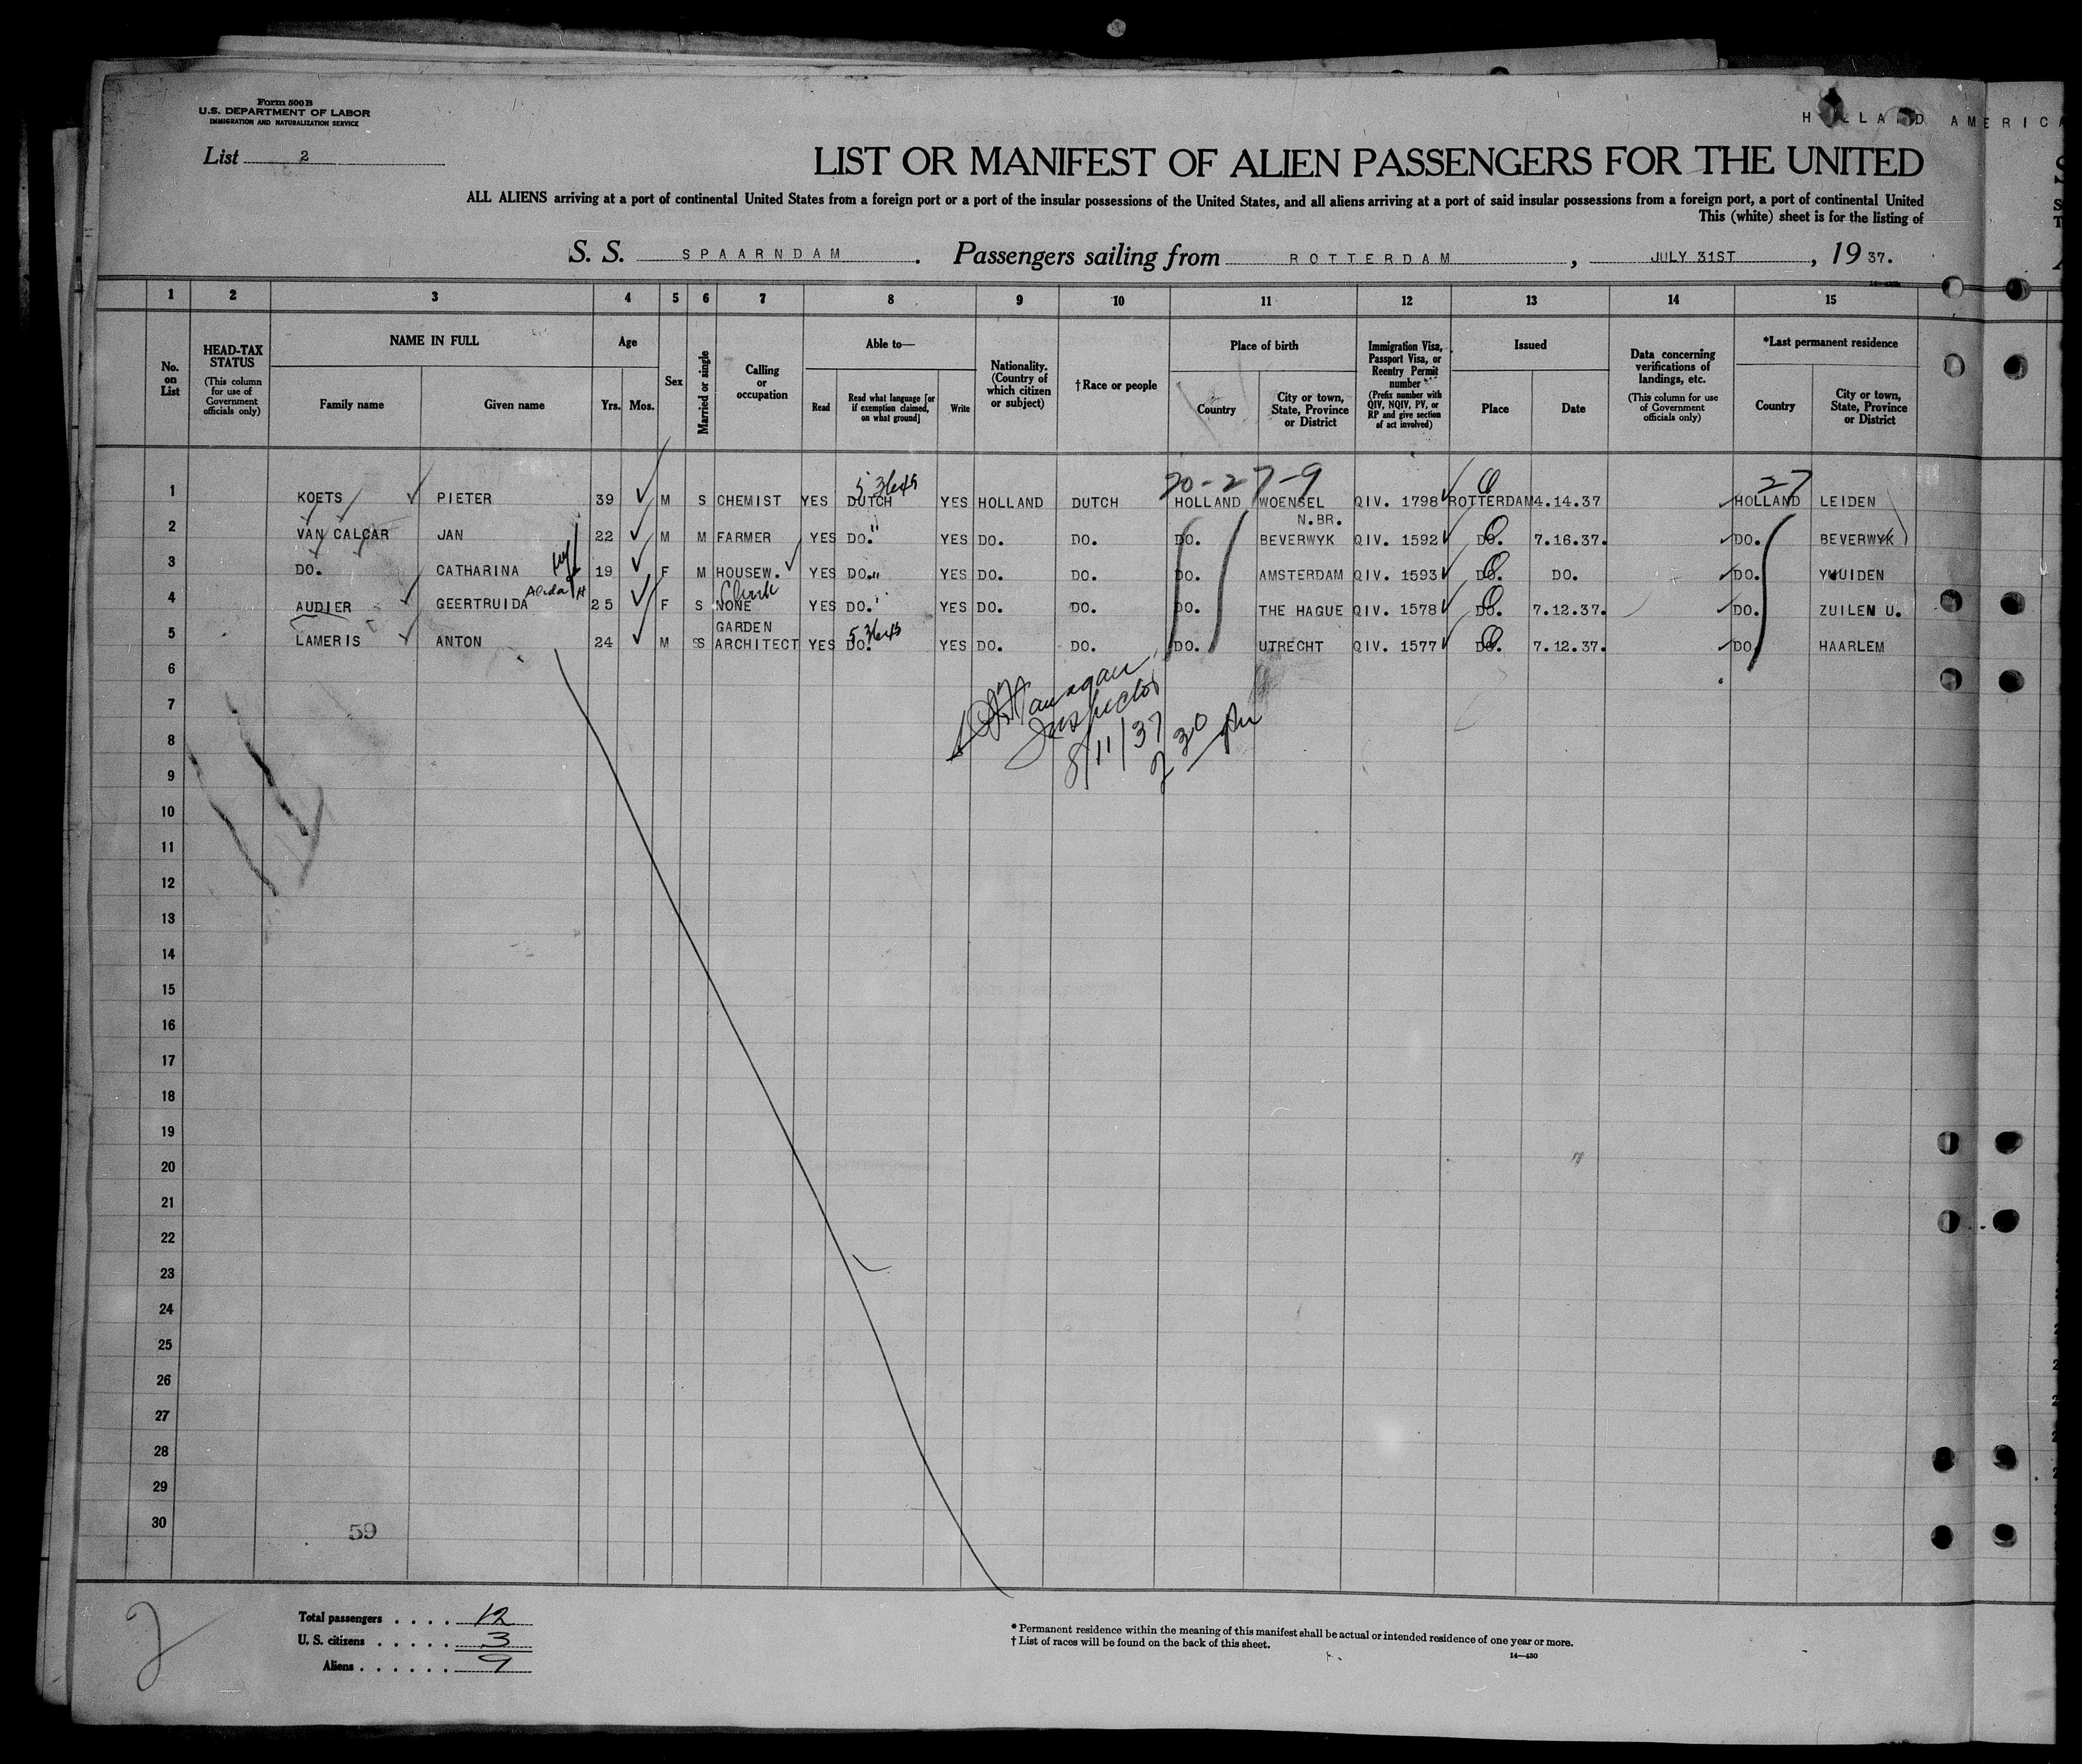 Form 500B
U.S. DEPARTMENT OF LABOR
IMMIGRATION AND NATURALIZATION SERVICE
HOLLAND AMERICA
List 2
LIST OR MANIFEST OF ALIEN PASSENGERS FOR THE UNITED
ALL ALIENS arriving at a port of continental United States from a foreign port or a port of the insular possessions of the United States, and all aliens arriving at a port of said insular possessions from a foreign port, a port of continental United
This (white) sheet is for the listing of
S. S. SPAARNDAM. Passengers sailing from ROTTERDAM, JULY 31ST, 1937.
1 2 3 4 5 6 7 8 9 10 11 12 13 14 15
No. on List
HEAD-TAX STATUS (This column for use of Government officials only)
NAME IN FULL
Family name Given name
Age
Yrs. Mos.
Sex
Married or single
Calling or occupation
Able to—
Read Read what language [or if exemption claimed, on what ground] Write
Nationality. (Country of which citizen or subject)
†Race or people
Place of birth
Country City or town, State, Province or District
Immigration Visa, Passport Visa, or Reentry Permit number (Prefix number with QIV, NQIV, PV, or RP and give section of act involved)
Issued
Place Date
Data concerning verifications of landings, etc. (This column for use of Government officials only)
*Last permanent residence
Country City or town, State, Province or District
20-27-9 27
1 KOETS PIETER 39 M S CHEMIST YES DUTCH YES HOLLAND DUTCH HOLLAND WOENSEL N.BR. QIV. 1798 ROTTERDAM 4.14.37 HOLLAND LEIDEN
2 VAN CALCAR JAN 22 M M FARMER YES DO. " YES DO. DO. DO. BEVERWYK QIV. 1592 DO. 7.16.37. DO. BEVERWYK
3 DO. CATHARINA 19 F M HOUSEW. YES DO. " YES DO. DO. DO. AMSTERDAM QIV. 1593 DO. DO. DO. YMUIDEN
4 AUDIER GEERTRUIDA Alida 25 F S NONE Clerk YES DO. YES DO. DO. DO. THE HAGUE QIV. 1578 DO. 7.12.37. DO. ZUILEN U.
5 LAMERIS ANTON 24 M S GARDEN ARCHITECT YES DO. YES DO. DO. DO. UTRECHT QIV. 1577 DO. 7.12.37. DO. HAARLEM
6
7
8
9
10
11
12
13
14
15
16
17
18
19
20
21
22
23
24
25
26
27
28
29
30
Inspector
8/11/37
2 30 pm
59
2
Total passengers . . . . 12
U. S. citizens . . . . . 3
Aliens . . . . . . 9
* Permanent residence within the meaning of this manifest shall be actual or intended residence of one year or more.
† List of races will be found on the back of this sheet.
14—430